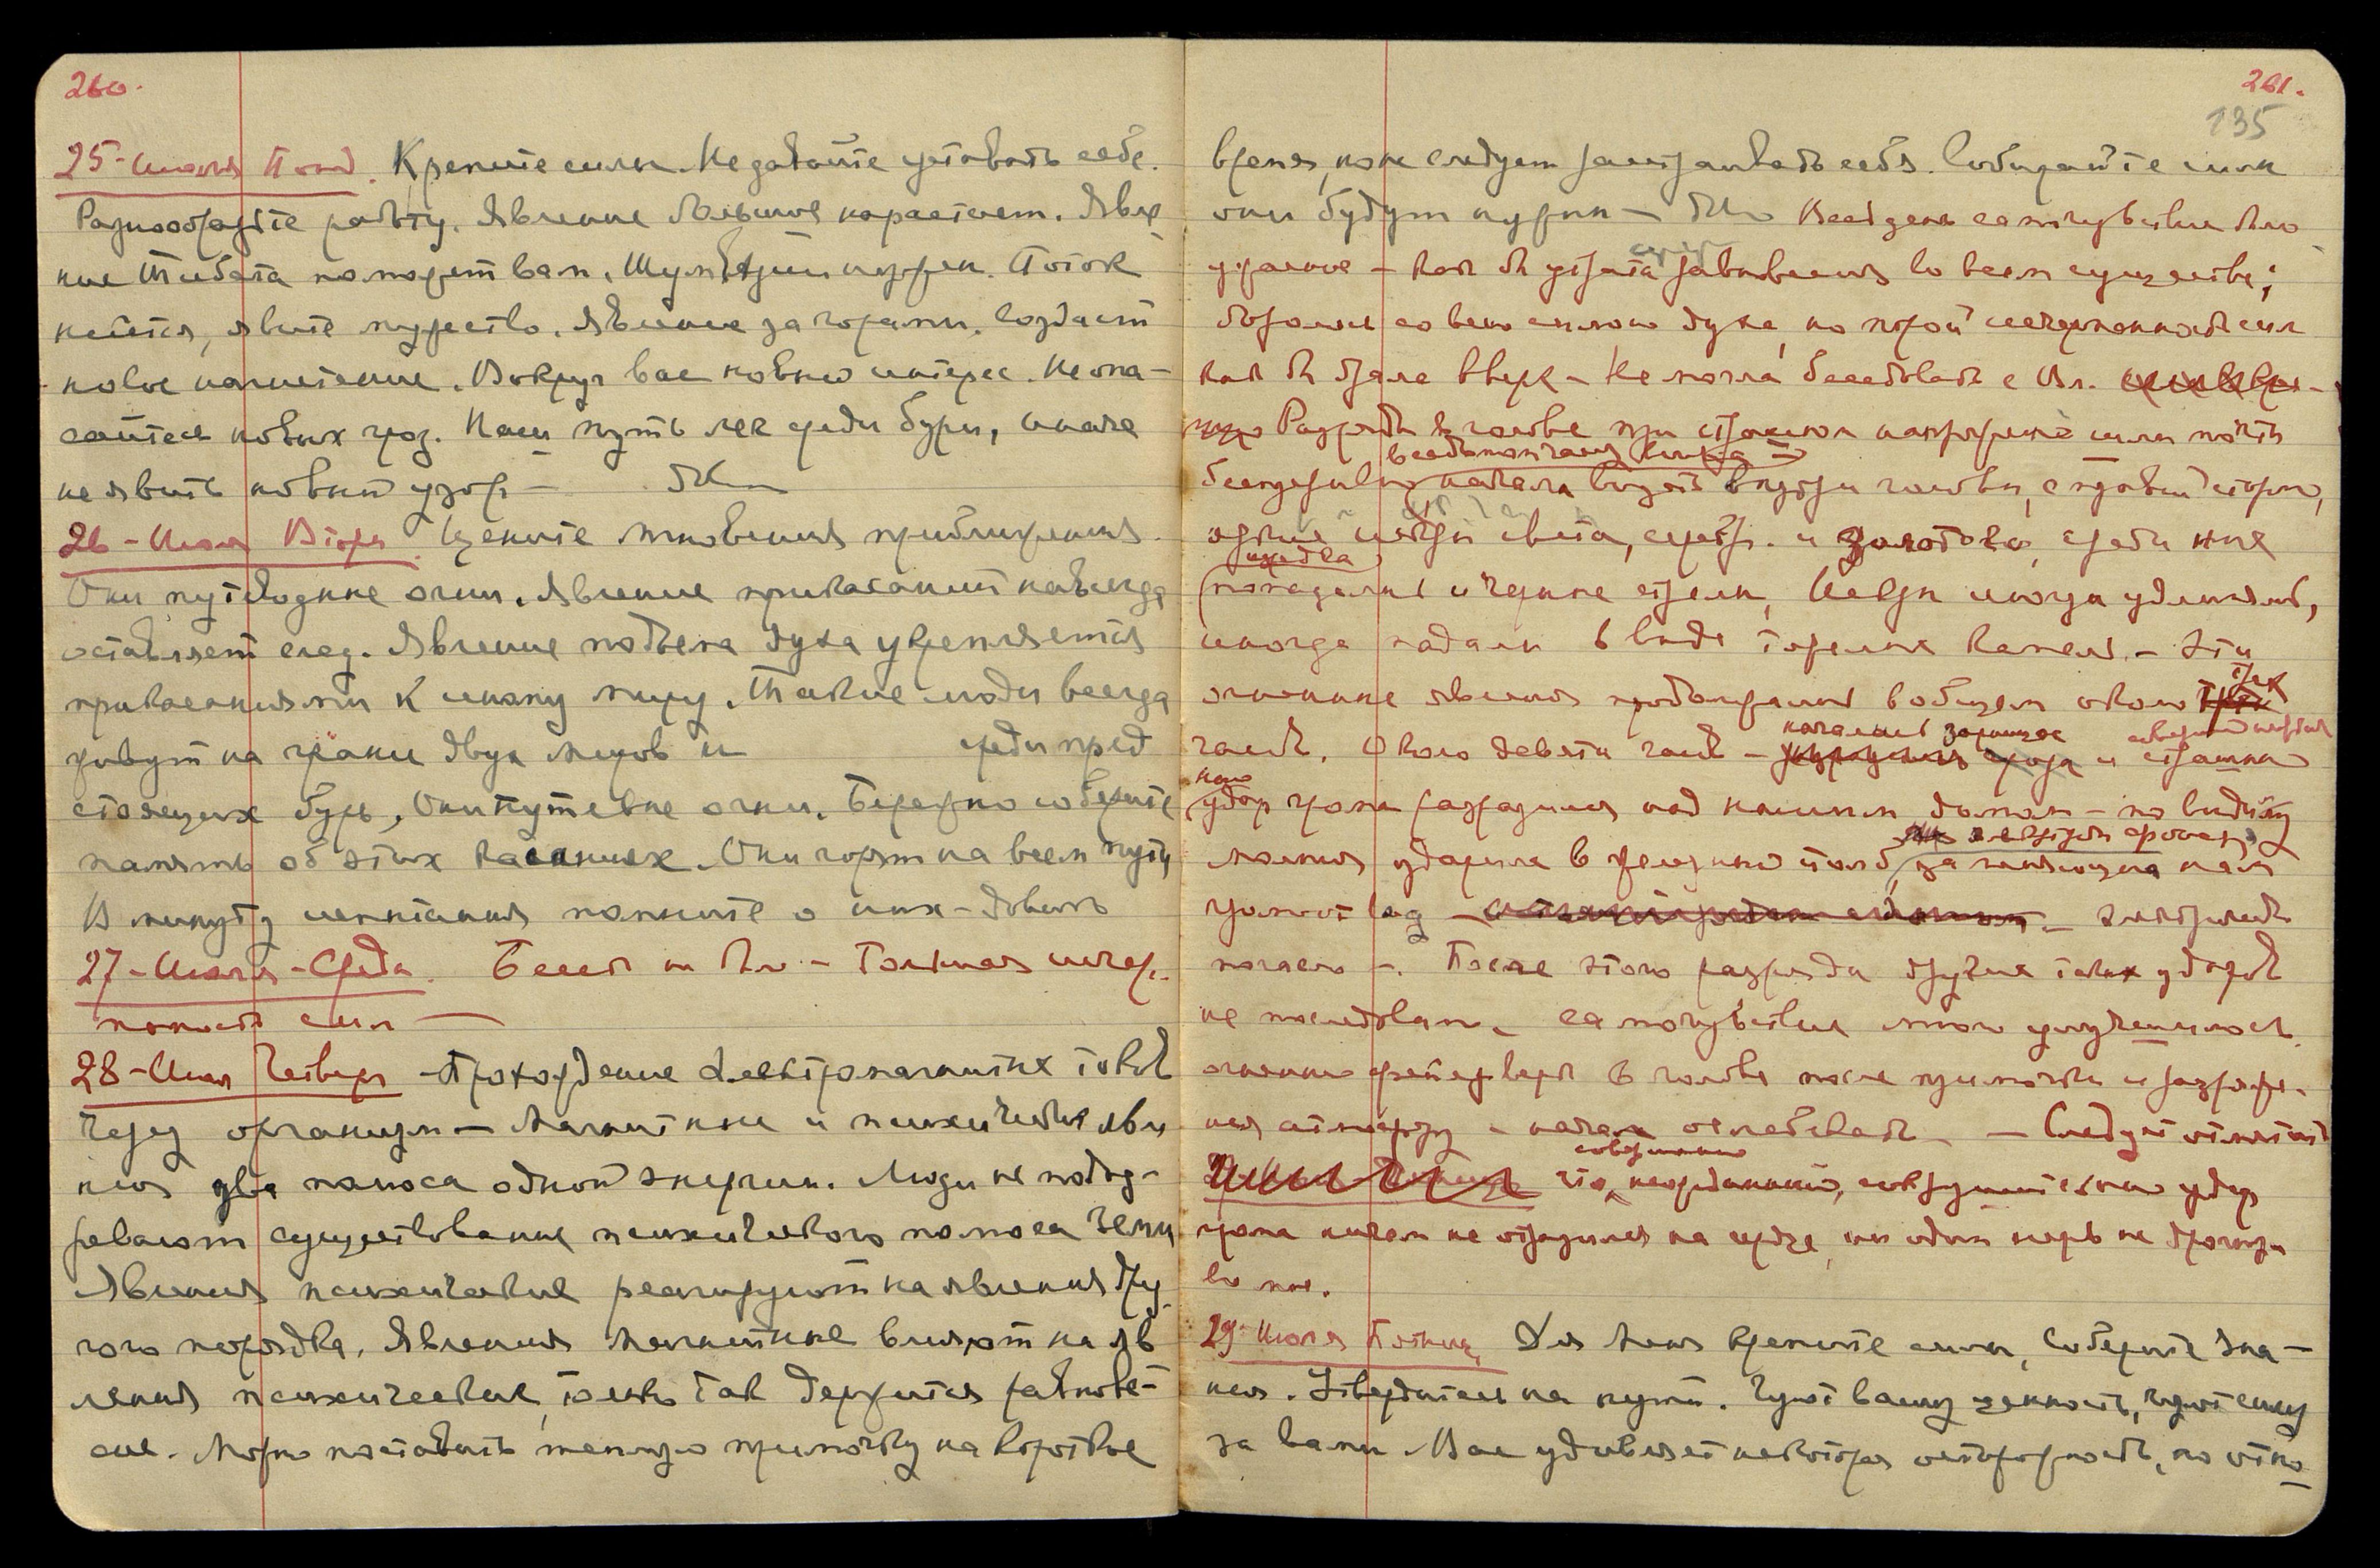 260.
25 - Июля Понд. Крепите силы. Не давайте уставать себе.
Разнообразьте работу. Явление большое нарастает. Явле
ние Тибета поможет вам. Шум Австрии нужен. Поток
несётся, явите мужество. Явление за горами. Создаст
новое нагнетение. Вокруг вас новый интерес. Не опа-
сайтесь новых гроз. Наш путь лег среди бури, иначе
не явить новый узор -
26 - Июля Вторн. Цените мгновения приближения.
Они путеводные огни. Явление прикасаний навсегда
оставляет след. Явление подъема духа укрепляется
прикасаниями к иному миру. Такие люди всегда
живут на грани двух миров и среди пред
стоящих бурь. Они путевые огни. Бережно соберите
память об этих касаниях. Они горят на всем пути
В минуту испытания помните о них - довольно
27 - Июля - Среда. Беседы не было - Полная исчер-
панность сил -
28 - Июля Четверг - Прохождение электромагнитных токов
через организм - Магнитные и психические явле
ния два полюса одной энергии. Люди не подоз-
ревают существование психического полюса земли
Явления психические реагируют на явления дру
гого порядка. Явления магнитные влияют на яв
ления психические, только так держится равнове-
сие. Можно поставить теплую примочку на короткое
261.
135
время, но не следует застуживать себя. Собирайте силы
они будут нужны - Весь день самочувствие было
ужасное - как бы утрата равновесия во всем существе;
боролась со всею силою духа, но порой исчерпанность сил
как бы брала вверх - Не могла беседовать с Вл.
Разряды в голове при страшном напряжении силы почти
беспрерывно начала видеть внутри головы, с правой стороны,
целые искры света, серебр. и золотого, среди них
изредка
попадались и черные стрелы, Искры иногда удлинялись,
иногда падали в виде горелых капель. - Эти
огненные явления продолжались в общем около трех
часов. Около девяти часов - начались зарницы и страшный
удар грома разразился над нашим домом - по видимому
молния ударила в железный столб, заменяющий нам
громоотвод - электричество
погасло -. После этого разряда других таких ударов
не последовало. Самочувствие мое улучшилось.
огненные фейерверки в голове после примочки и разряже-
ния атмосферы - начали ослабевать - - Следует отметить
что, совершенно неожиданный, сокрушительный удар
грома ничем не отразился на сердце, ни один нерв не дрогнул
во мне.
29 - Июля Пятница. Для Меня крепите силы, соберите зна-
ния. Утвердитесь на пути. Чуют вашу ценность, чуют силу
за вами. Вас удивляет некоторая осторожность, но отно-